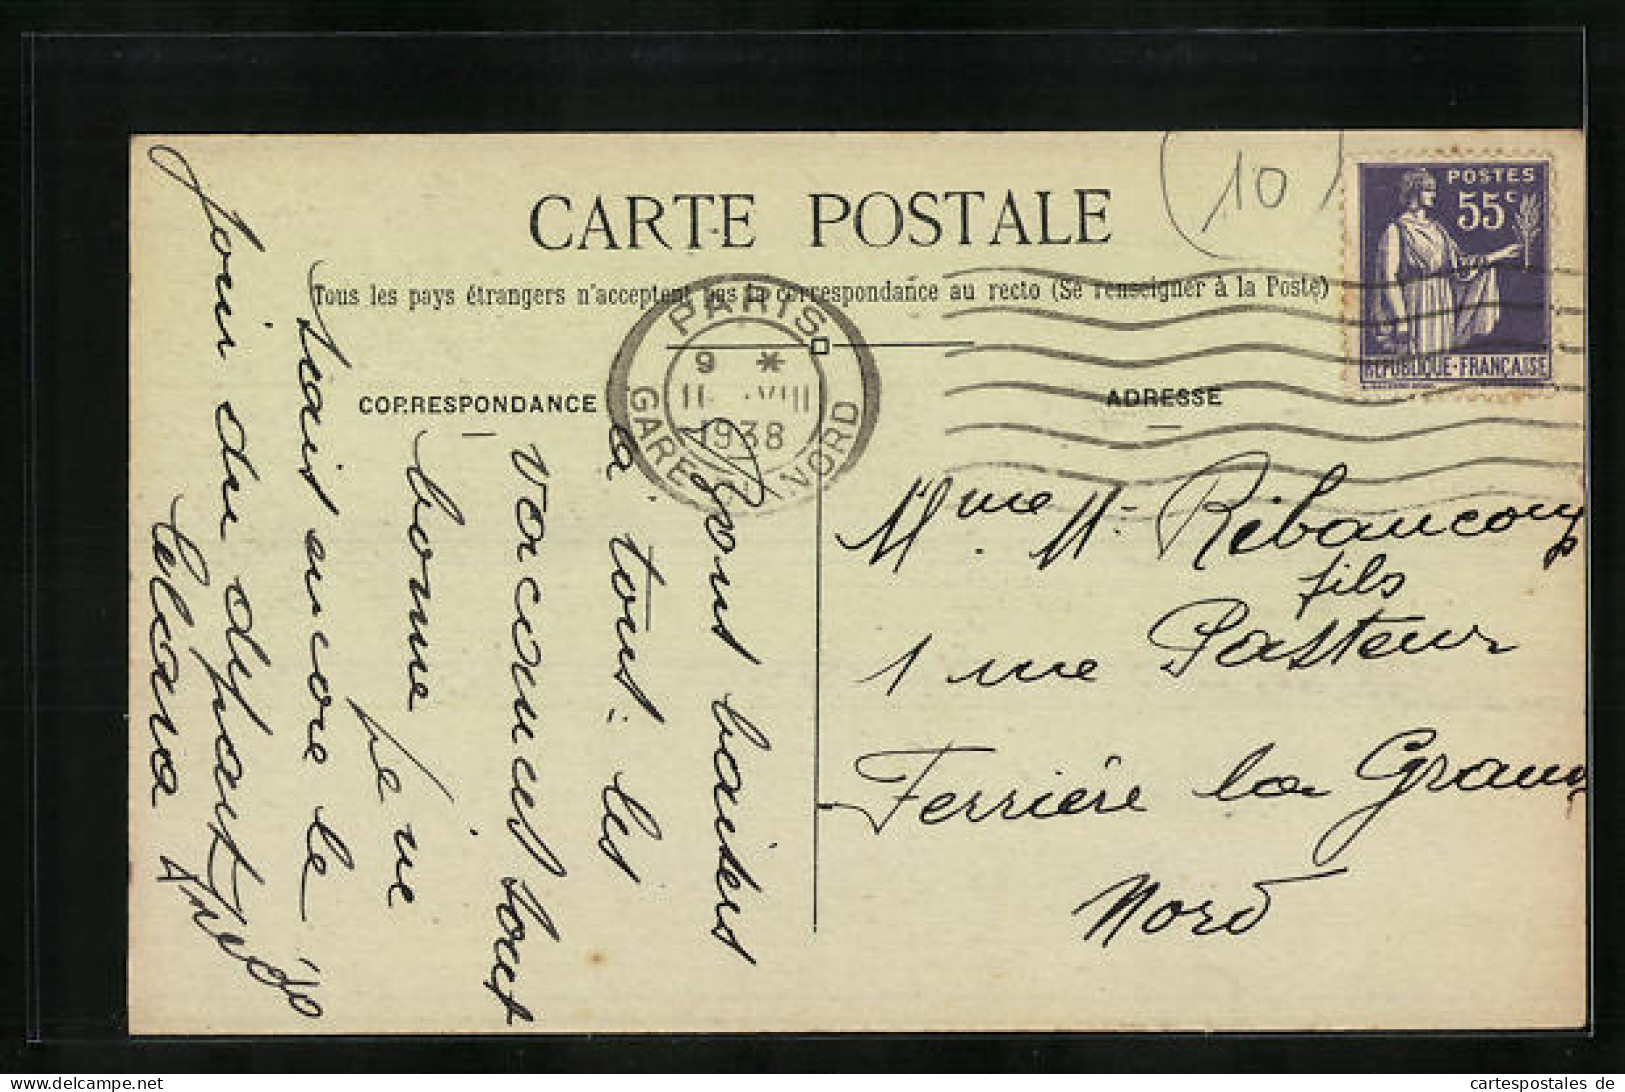 CARTE POSTALE
Tous les pays étrangers n'acceptent pas la correspondance au recto (Se renseigner à la Poste)
CORRESPONDANCE
ADRESSE
(10)
POSTES
55c
REPUBLIQUE-FRANÇAISE
PARIS
9 *
11 VIII
1938
GARE NORD
Bons baisers
à tous. les
vacances sont
bonne je ne
sais encore le
jour du départ
Mme M. Ribaucourt
fils
1 rue Pasteur
Ferrière la Grande
Nord
cartespostales de